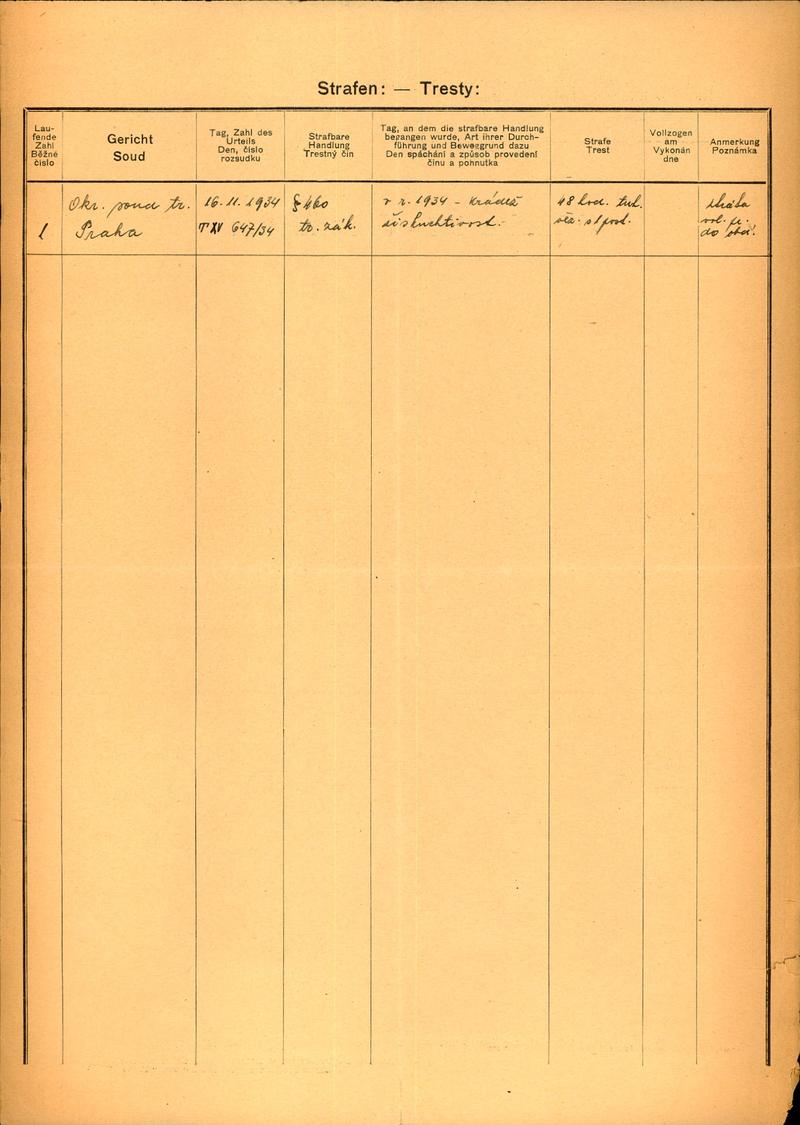 Strafen: — Tresty:
Lau-
fende
Zahl
Běžné
číslo
Gericht
Soud
Tag, Zahl des
Urteils
Den, číslo
rozsudku
Strafbare
Handlung
Trestný čin
Tag, an dem die strafbare Handlung
begangen wurde, Art ihrer Durch-
führung und Beweggrund dazu
Den spáchání a způsob provedení
činu a pohnutka
Strafe
Trest
Vollzogen
am
Vykonán
dne
Anmerkung
Poznámka
1
Okr. soud tr.
Praha
16.11.1934
T XV 647/34
§ 460
tr. zák.
v r. 1934 - krádež
zištuchtivost.
48 hod. tuh.
věz.
lhůta
do